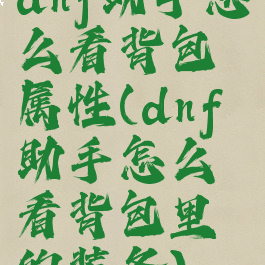 dnf助手怎
么看背包
属性(dnf
助手怎么
看背包里
的装备)